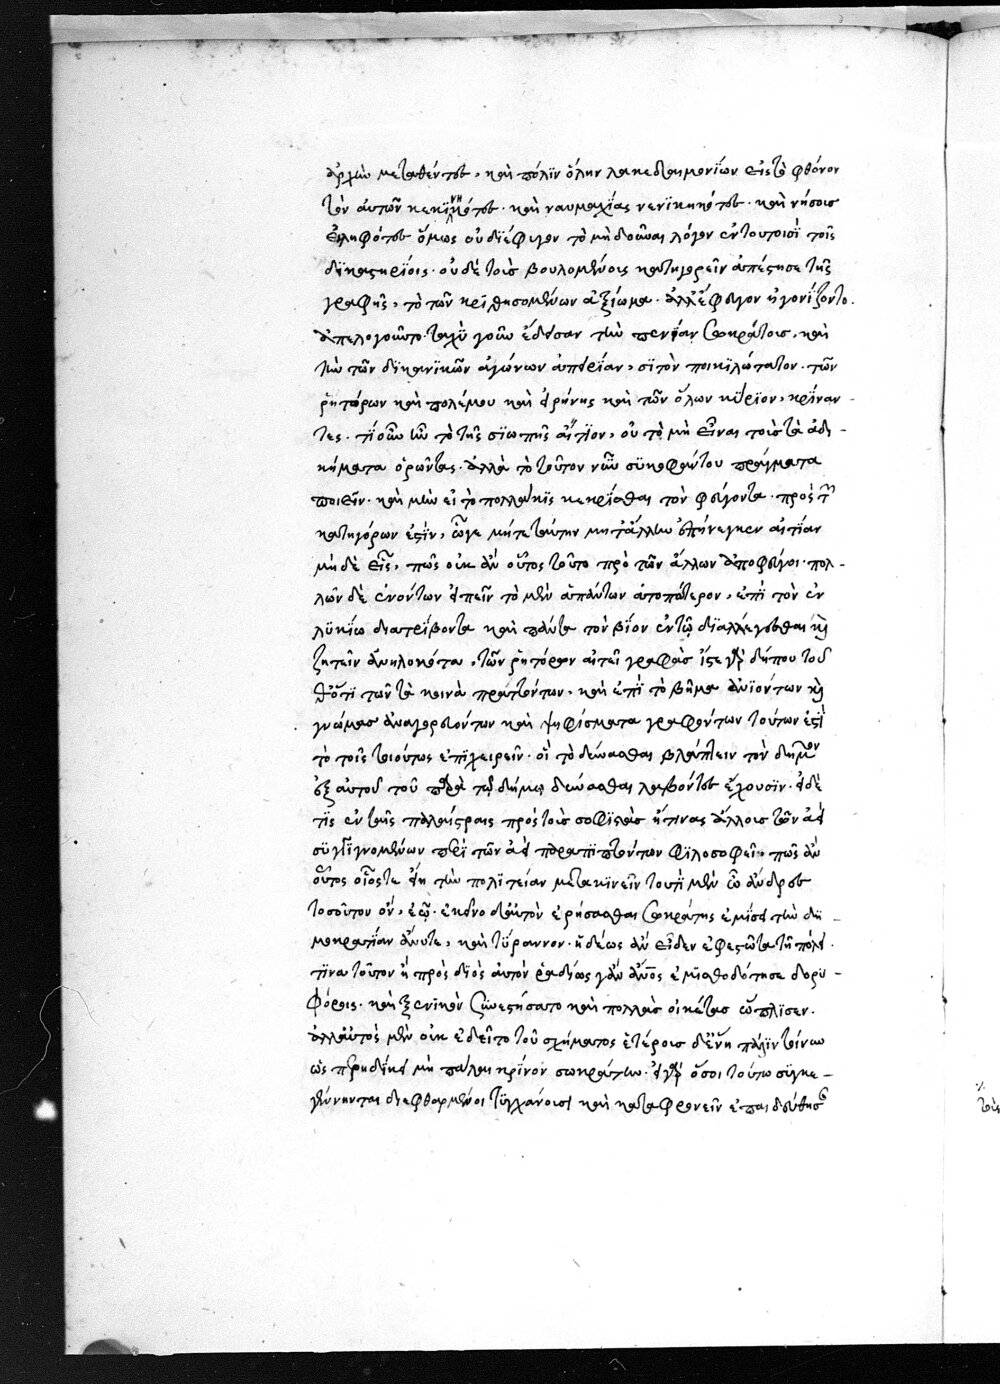 ἀρχὴν μεταθέντες, καὶ πόλιν ὅλην λακεδαιμονίων εἰς τὸ φθόνον
τὸν αὐτῶν κεκινηκότες· καὶ ναυμαχίας νενικηκότες· καὶ νήσους
εἰληφότες ὅμως οὐ διέφυγον τὸ μὴ δοῦναι λόγον ἐν τουτοισὶ τοῖς
δικαστηρίοις· οὐδὲ τοὺς βουλομένους κατηγορεῖν ἀπέστησε τῆς
γραφῆς, τὸ τῶν κριθησομένων ἀξίωμα· ἀλλ' ἔφευγον ἠγονίζοντο.
ἀπελογοῦντο· ταχὺ γοῦν ἔδεισαν τὴν πενίαν σωκράτους, καὶ
τὴν τῶν δικανικῶν ἀγώνων ἀπειρίαν, οἱ τὸν ποικιλώτατον· τῶν
ῥητόρων καὶ πολέμου καὶ εἰρήνης καὶ τῶν ὅλων κύριον, κρίναν-
τες· τί οὖν ἦν τὸ τῆς σιωπῆς αἴτιον, οὐ τὸ μὴ εἶναι τοὺς τὰ ἀδι-
κήματα ὁρῶντας· ἀλλὰ τὸ τοῦτον νῦν συκοφάντου πράγματα
ποιεῖν· καὶ μὴν εἰ τὸ πολλάκις κεκρίσθαι τὸν φεύγοντα· πρὸς τῶν
κατηγόρων ἐστὶν, ὥγε μήτε ταύτην μήτ' ἄλλην ἐπήνεγκεν αἰτίαν
μηδὲ εἷς, πῶς οὐκ ἂν οὗτος τοῦτο πρὸ τῶν ἄλλων ἀποφεύγοι· πολ-
λῶν δὲ ἐνόντων εἰπεῖν τὸ μὲν ἁπάντων ἀτοπώτερον, ἐπὶ τὸν ἐν
λυκίω διατρίβοντα καὶ πάντα τὸν βίον ἐν τῷ διαλλέγεσθαι καὶ
ζητεῖν ἀνηλοκότα, τῶν ῥητόρων αἰτεῖ γραφὰς ἴστε γὰρ δήπου τοῦ
θ' ὅτι τῶν τὰ κοινὰ πραττόντων, καὶ ἐπὶ τὸ βῆμα ἀνϊόντων καὶ
γνώμας ἀναγορευόντων καὶ ψηφίσματα γραφόντων τούτων ἐστὶ
τὸ τοῖς τοιούτοις ἐπιχειρεῖν· οἳ τὸ δεύνασθαι βλάπτειν τὸν δῆμον
ἐξ αὐτοῦ τοῦ παρὰ τῷ δήμῳ δεύνασθαι λαβόντες ἔχουσιν· εἰ δὲ
τις ἐν ταῖς παλαίστραις πρὸς τοὺς σοφιστὰς ἤ τινας ἄλλους τῶν ἀεὶ
συγγιγνομένων περὶ τῶν ἀεὶ παραπιπτόντων φιλοσοφεῖ, πῶς ἂν
οὗτος οἷός τε εἴη τὴν πολιτείαν μετακινεῖν τουτὶ μὲν ὦ ἄνδρες
τοσοῦτον ὂν,
μοκρατίαν ἄνυτε, καὶ τύραννον· ἡδέως ἂν εἶδεν ἐφεστῶτα τῇ πόλει·
τίνα τοῦτον ἢ πρὸς διὸς αὐτὸν ῥᾳδίως γὰρ ἂν ἐμισθοδότησε δορυ-
φόροις· καὶ ξενικὸν συνεστήσατο καὶ πολλοὺς οἰκέτας ὥπλισεν.
ἀλλ' αὐτὸς μὲν οὐκ ἐδεῖτο τοῦ σχήματος ἑτέροις
ὡς μὴ πάλαι κρίνον σωκράτην· εἰ γὰρ ὅσοι τούτω συγγε-
γένηνται διεφθαρμένοι τυγχάνουσι καὶ καταφρονεῖν ἐπαιδεύθησαν